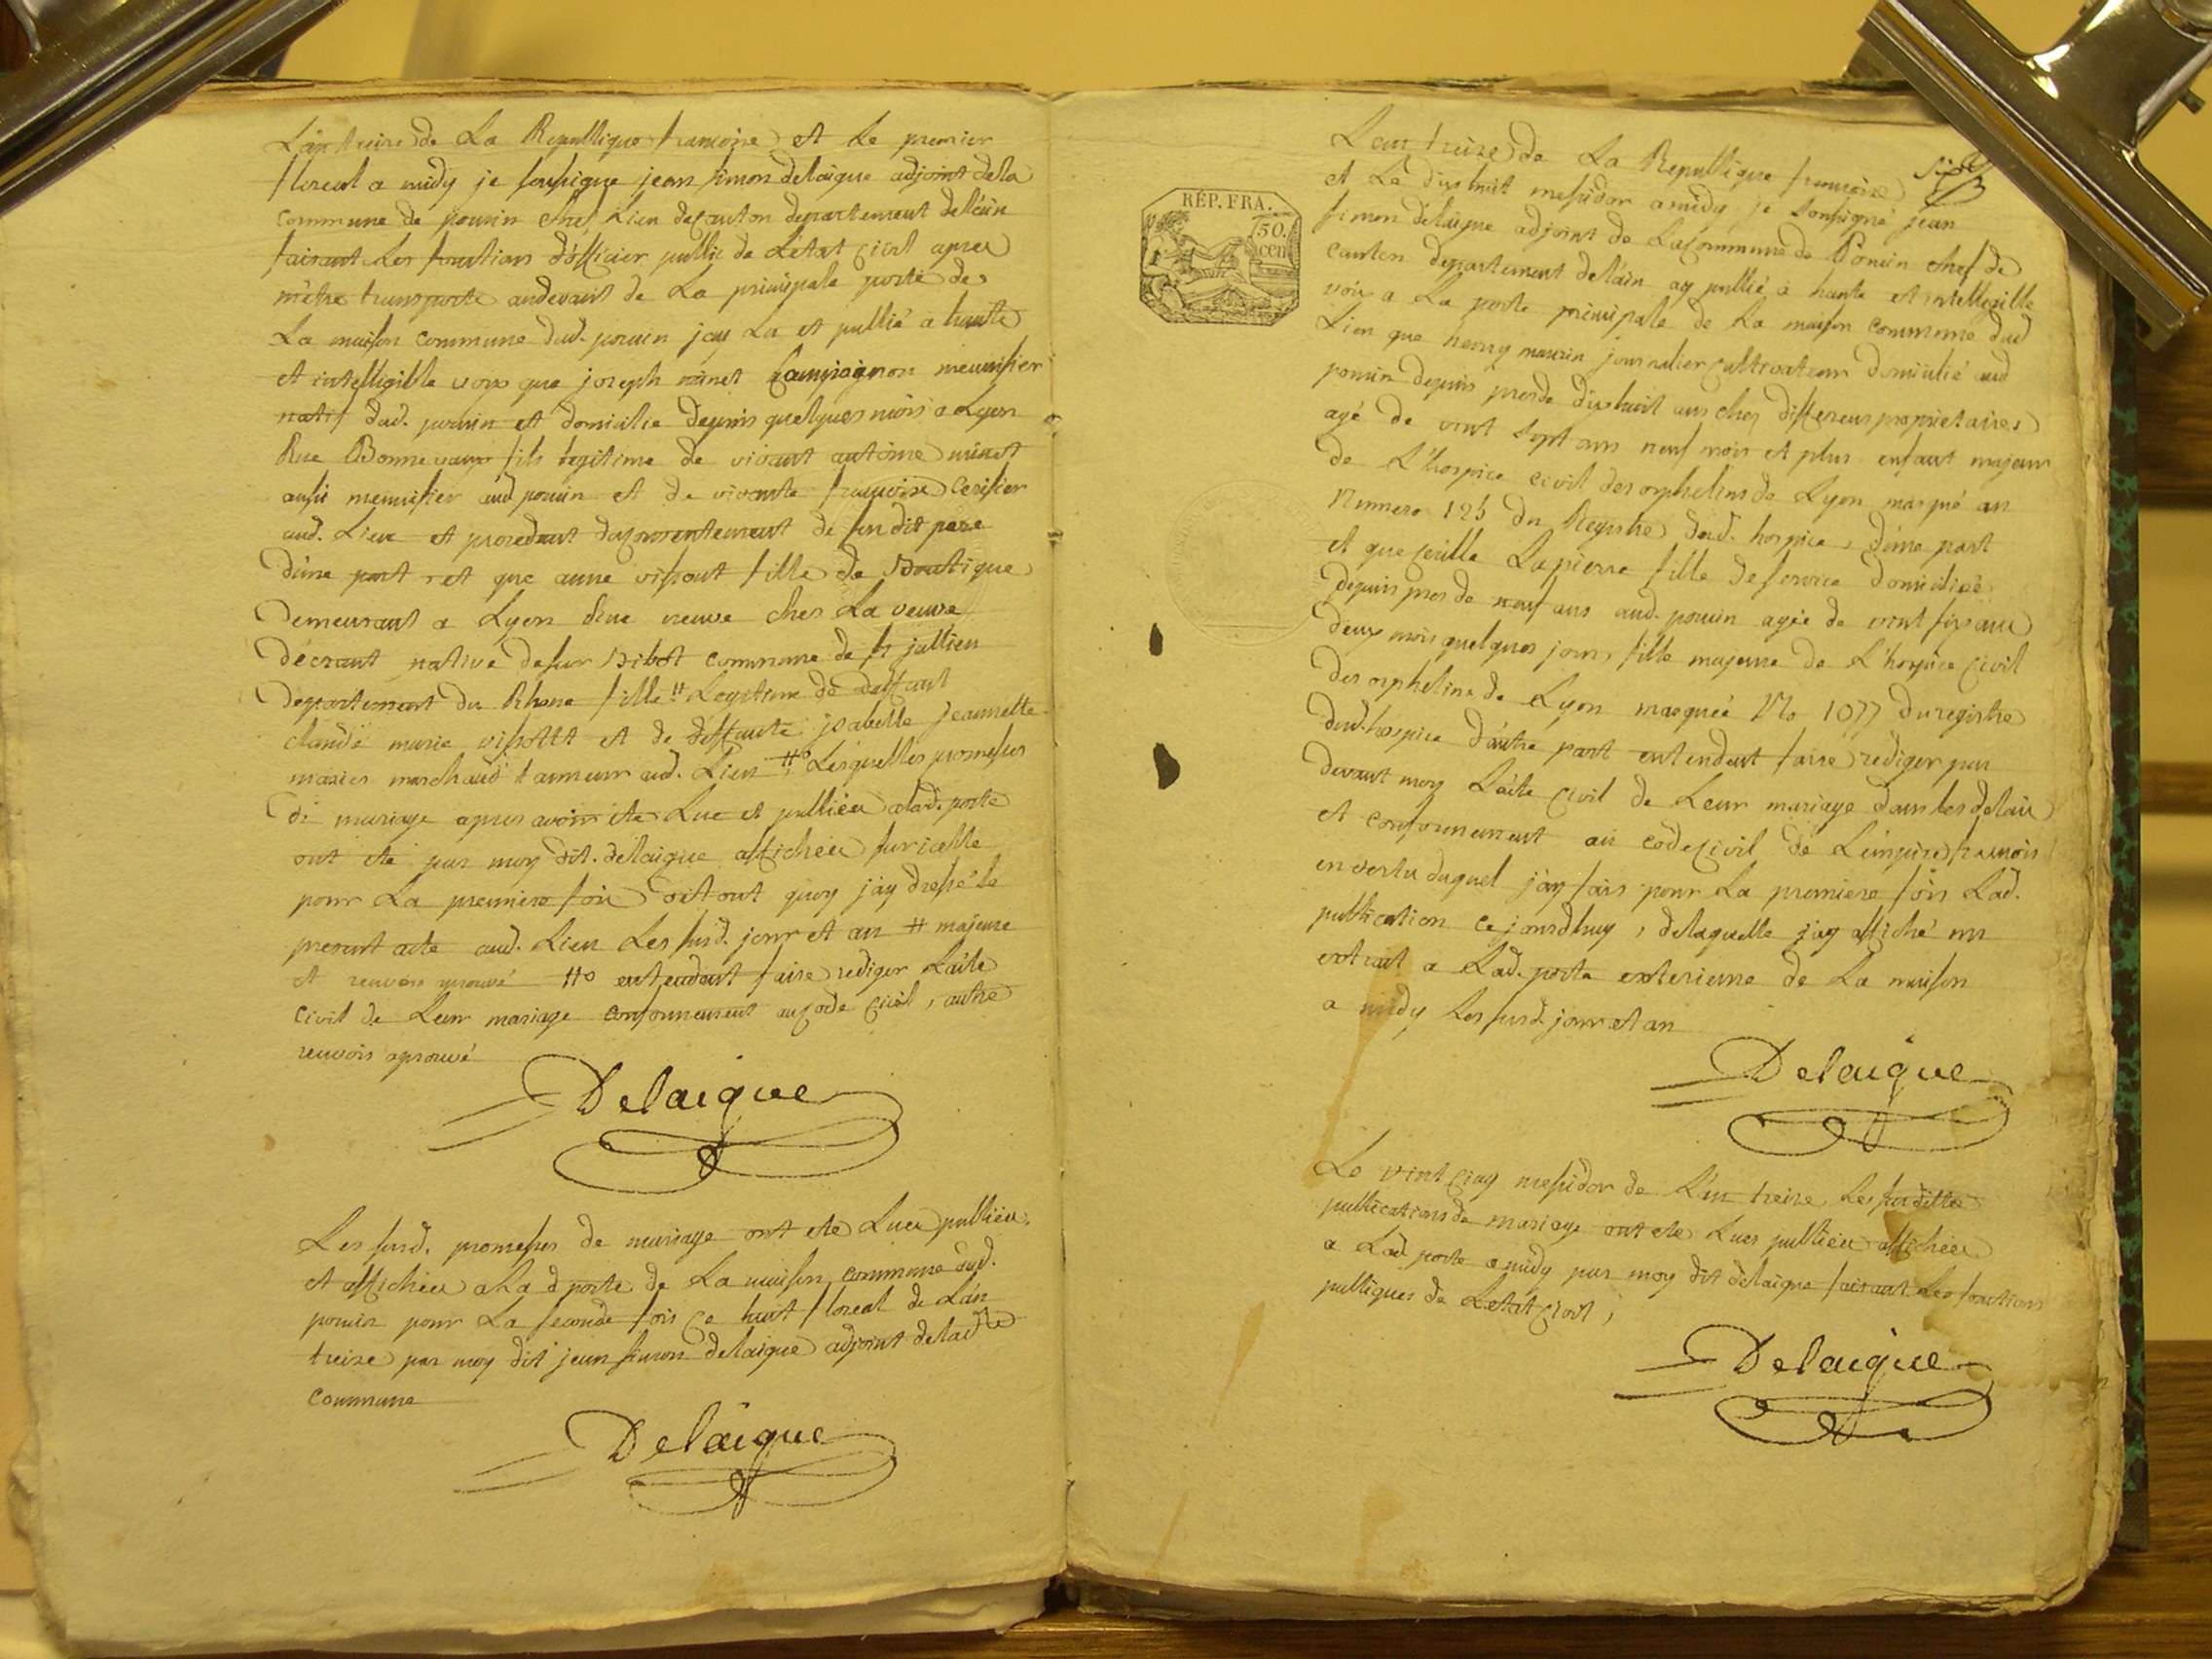 L'an treize de La Republique francoise et Le premier
floreal a midy je soussigne jean simon delaigue adjoint dela
commune de poncin chef Lieu de canton departement de l'ain
faisant Les fonctions d'officier public de L'etat civil apres
m'etre transporte audevant de La principale porte de
La maison commune dud. poncin jay Lu et publié a haute
et intelligible voix que joseph minet Compagnon menuisier
natif dud. poncin et domicilie depuis quelques mois a Lyon
Rue Bonnevaux fils legitime de vivant antoine minet
aussi menuisier aud poncin et de vivante francoise Cerisier
aud. Lieu et procedant du consentement de son dit pere
d'une part, et que anne vissout fille de Boutique
Demeurant a Lyon rue neuve ches La veuve
Décrant native de sur Bibost commune de st jullien
Departement du Rhone fille # Legitime de deffunt
claude marie et de deffunte jsabelle jeannette
masier marchand tanneur aud. Lieu #°, Lesquelles promesses
de mariage apres avoir ete Lue et publiées alad. porte
ont ete par moy dit. delaigue affichées sur icelle
pour La premiere fois de tout quoy j'ay dressé le
present acte aud. Lieu Les susd. jour et an # majeure
et renvoy aprouvé #° entendant faire rediger L'acte
civil de Leur mariage conformement au code civil, autre
renvois aprouvé
Delaigue
Les susd. promesses de mariage ont ete Lues publiées
et affichées a La d porte de La maison commune dud.
poncin pour La seconde fois ce huit floreal de L'an
treize par moy dit jean simon delaigue adjoint de ladite
commune
Delaigue
RÉP. FRA.
50. cen
L'an treize de La Republique francoise
et Le dix huit messidor a midy je soussigné jean
simon delaigue adjoint de La Commune de Poncin chef de
canton departement de l'ain ay publié à haute et intelligible
voix a La porte principale de La maison commune dud
Lieu que henry maurin journalier cultivateur domicilié aud
poncin depuis pres de dix huit ans ches differens proprietaires
agé de vint sept ans neuf mois et plus enfant majeur
de L'hospice civil des orphelins de Lyon marqué au
Numero 125 du Registre dud. hospice, d'une part
et que Cecille Lapierre fille de service domiciliée
depuis pres de neuf ans aud. poncin agée de vint six ans
deux mois quelques jours fille majeure de L'hospice civil
des orphelins de Lyon marquée No 1077 du registre
dud. hospice d'autre part entendent faire rediger par
devant moy L'acte civil de Leur mariage dans les delais
et conformement au code civil de L'empire francois
en vertu duquel j'ay fais pour La premiere fois Lad.
publication ce jourdhuy, de laquelle j'ay affiché un
extrait a Lad. porte exterieure de La maison
a midy Les susd. jour et an
Delaigue
Le vint cinq messidor de L'an treize Les susdittes
publications de mariage ont ete Lues publiées affichées
a Lad porte a midy par moy dit delaigue faisant Les fonctions
publiques de L'etat civil,
Delaigue